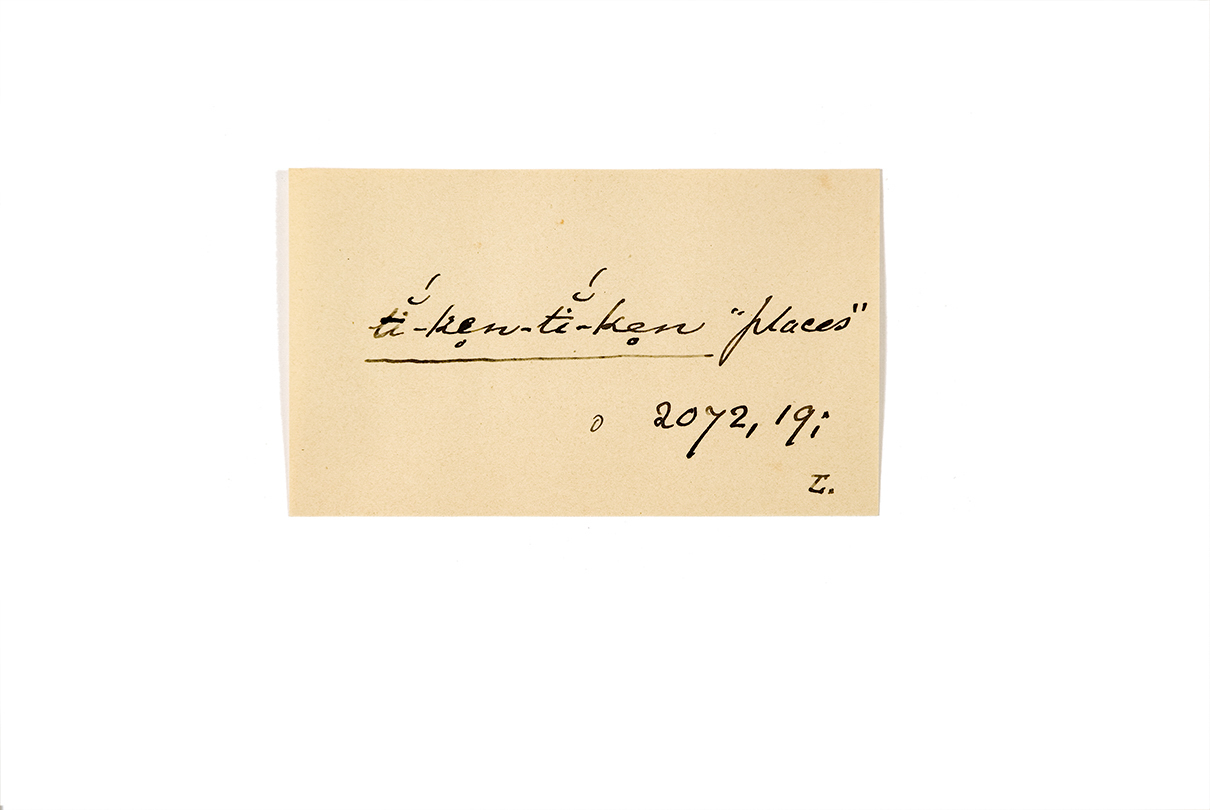 tĭ́-ke̥n-tĭ́-ke̥n "places"
o 2072, 19;
I.